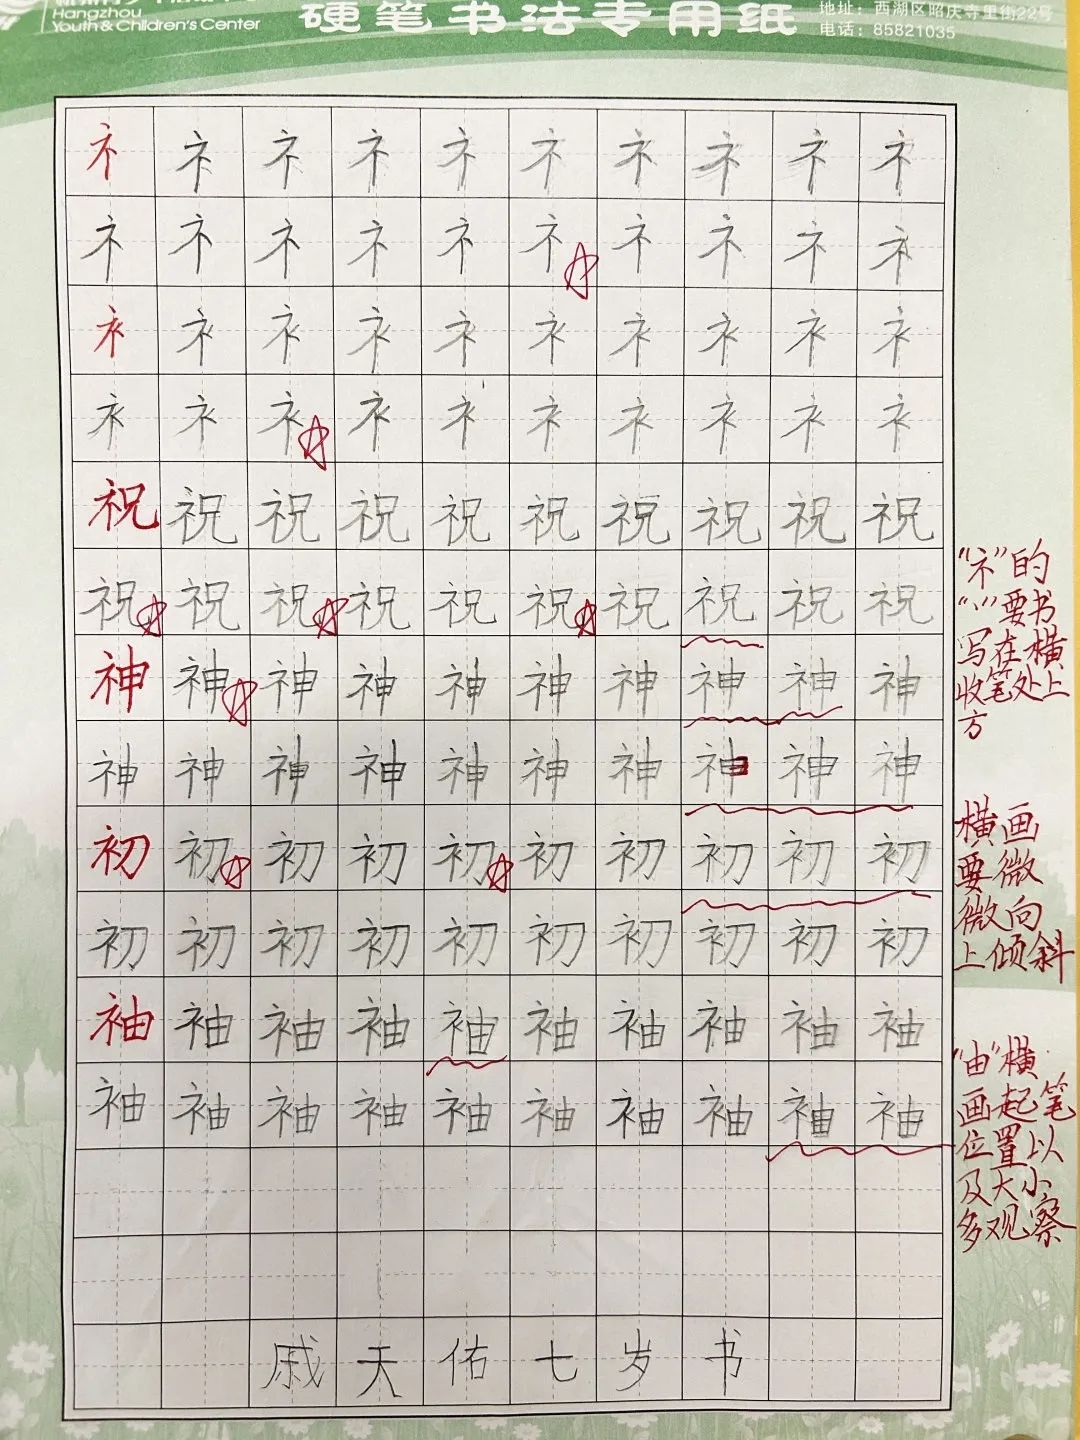 Hangzhou
Youth & Children's Center
硬笔书法专用纸
地址：西湖区昭庆寺里街22号
电话：85821035
礻 礻 礻 礻 礻 礻 礻 礻 礻 礻
礻 礻 礻 礻 礻 礻 礻 礻 礻 礻
衤 衤 衤 衤 衤 衤 衤 衤 衤 衤
衤 衤 衤 衤 衤 衤 衤 衤 衤 衤
祝 祝 祝 祝 祝 祝 祝 祝 祝 祝
祝 祝 祝 祝 祝 祝 祝 祝 祝 祝
神 神 神 神 神 神 神 神 神 神
神 神 神 神 神 神 神 神 神 神
初 初 初 初 初 初 初 初 初 初
初 初 初 初 初 初 初 初 初 初
袖 袖 袖 袖 袖 袖 袖 袖 袖 袖
袖 袖 袖 袖 袖 袖 袖 袖 袖 袖
戚天佑七岁书
“礻”的
“丶”要书
写在横
收笔处上
方
横画
要微
微向
上倾斜
“由”横
画起笔
位置以
及大小
多观察